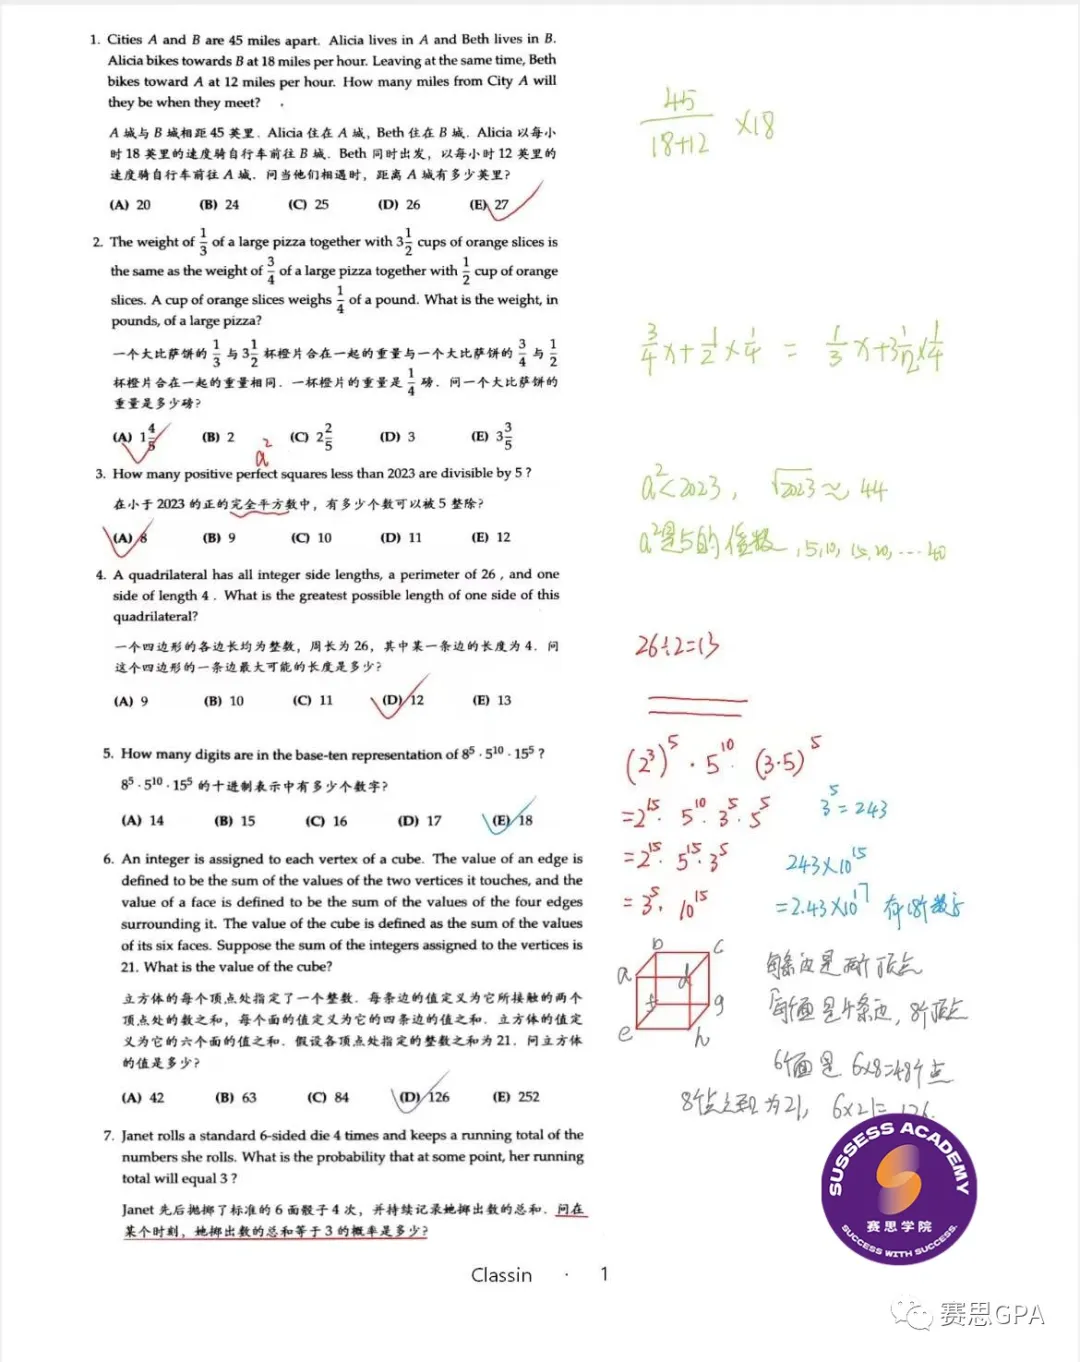 1. Cities A and B are 45 miles apart. Alicia lives in A and Beth lives in B.
Alicia bikes towards B at 18 miles per hour. Leaving at the same time, Beth
bikes toward A at 12 miles per hour. How many miles from City A will
they be when they meet?
A 城与 B 城相距 45 英里. Alicia 住在 A 城, Beth 住在 B 城. Alicia 以每小
时 18 英里的速度骑自行车前往 B 城. Beth 同时出发, 以每小时 12 英里的
速度骑自行车前往 A 城. 问当他们相遇时, 距离 A 城有多少英里?
(A) 20 (B) 24 (C) 25 (D) 26 (E) 27
45/(18+12) ×18
2. The weight of 1/3 of a large pizza together with 3 1/2 cups of orange slices is
the same as the weight of 3/4 of a large pizza together with 1/2 cup of orange
slices. A cup of orange slices weighs 1/4 of a pound. What is the weight, in
pounds, of a large pizza?
一个大比萨饼的 1/3 与 3 1/2 杯橙片合在一起的重量与一个大比萨饼的 3/4 与 1/2
杯橙片合在一起的重量相同. 一杯橙片的重量是 1/4 磅. 问一个大比萨饼的
重量是多少磅?
(A) 1 4/5 (B) 2 (C) 2 2/5 (D) 3 (E) 3 3/5
3/4 x + 1/2 × 1/4 = 1/3 x + 3 1/2 × 1/4
a²
3. How many positive perfect squares less than 2023 are divisible by 5 ?
在小于 2023 的正的完全平方数中, 有多少个数可以被 5 整除?
(A) 8 (B) 9 (C) 10 (D) 11 (E) 12
a² < 2023, √2023 ≈ 44
a²是5的倍数, 5, 10, 15, 20, ... 40
4. A quadrilateral has all integer side lengths, a perimeter of 26 , and one
side of length 4 . What is the greatest possible length of one side of this
quadrilateral?
一个四边形的各边长均为整数, 周长为 26, 其中某一条边的长度为 4. 问
这个四边形的一条边最大可能的长度是多少?
(A) 9 (B) 10 (C) 11 (D) 12 (E) 13
26÷2=13
5. How many digits are in the base-ten representation of 8⁵ · 5¹⁰ · 15⁵ ?
8⁵ · 5¹⁰ · 15⁵ 的十进制表示中有多少个数字?
(A) 14 (B) 15 (C) 16 (D) 17 (E) 18
(2³)⁵ · 5¹⁰ · (3·5)⁵
=2¹⁵ · 5¹⁰ · 3⁵ · 5⁵
=2¹⁵ · 5¹⁵ · 3⁵
=3⁵ · 10¹⁵
3⁵ = 243
243×10¹⁵
=2.43×10¹⁷ 有18个数字
6. An integer is assigned to each vertex of a cube. The value of an edge is
defined to be the sum of the values of the two vertices it touches, and the
value of a face is defined to be the sum of the values of the four edges
surrounding it. The value of the cube is defined as the sum of the values
of its six faces. Suppose the sum of the integers assigned to the vertices is
21. What is the value of the cube?
立方体的每个顶点处指定了一个整数. 每条边的值定义为它所接触的两个
顶点处的数之和, 每个面的值定义为它的四条边的值之和. 立方体的值定
义为它的六个面的值之和. 假设各顶点处指定的整数之和为 21. 问立方体
的值是多少?
(A) 42 (B) 63 (C) 84 (D) 126 (E) 252
b c
a d
f g
e h
每条边是两个顶点
每个面是4条边, 8个顶点
6个面是 6×8=48个点
8个点之和为21, 6×21=126.
7. Janet rolls a standard 6-sided die 4 times and keeps a running total of the
numbers she rolls. What is the probability that at some point, her running
total will equal 3 ?
Janet 先后抛掷了标准的 6 面骰子 4 次, 并持续记录她掷出数的总和. 问在
某个时刻, 她掷出数的总和等于 3 的概率是多少?
SUSSESS ACADEMY
赛思学院
SUCCESS WITH SUCCESS.
Classin · 1
赛思GPA